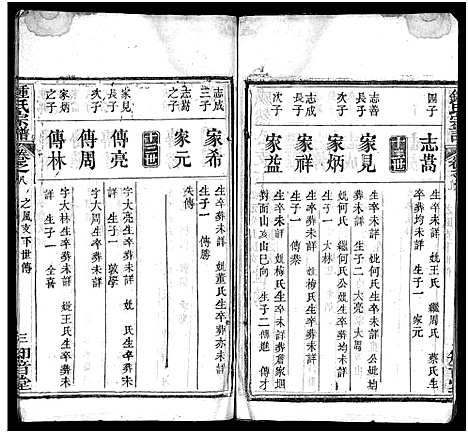 國子
志嵩
生卒葬均未詳 娍王氏 繼周氏 蔡氏生
卒葬均未詳 生子一 家元
十二世
志善
長子
家見
葬未詳 生子二 大亮 大周
志善
次子
家炳
娍何氏 繼何氏公娍生卒葬均未詳
生子一 大林
志成
長子
家祥
生卒葬未詳 娍梅氏生卒葬未詳
生子一 傳榮
志成
次子
家益
生卒葬未詳 娍梅氏生卒葬詹家堌
對面山艮山巳向 生子二 傳進 傳才
志成
三子
家希
生卒葬未詳 娍董氏生卒葬亦未詳
生子一 傳勝
志嵩
之子
家元
失傳
十三世
家見
長子
傳亮
字大亮生卒葬未詳 娍王氏生卒葬未詳
生子一 敦學
家見
次子
傳周
字大周生卒葬未詳
家炳
之子
傳林
字大林生卒葬未詳
生子一 全喜
鍾氏宗譜
卷之八
之風支下世傳
三 知音堂